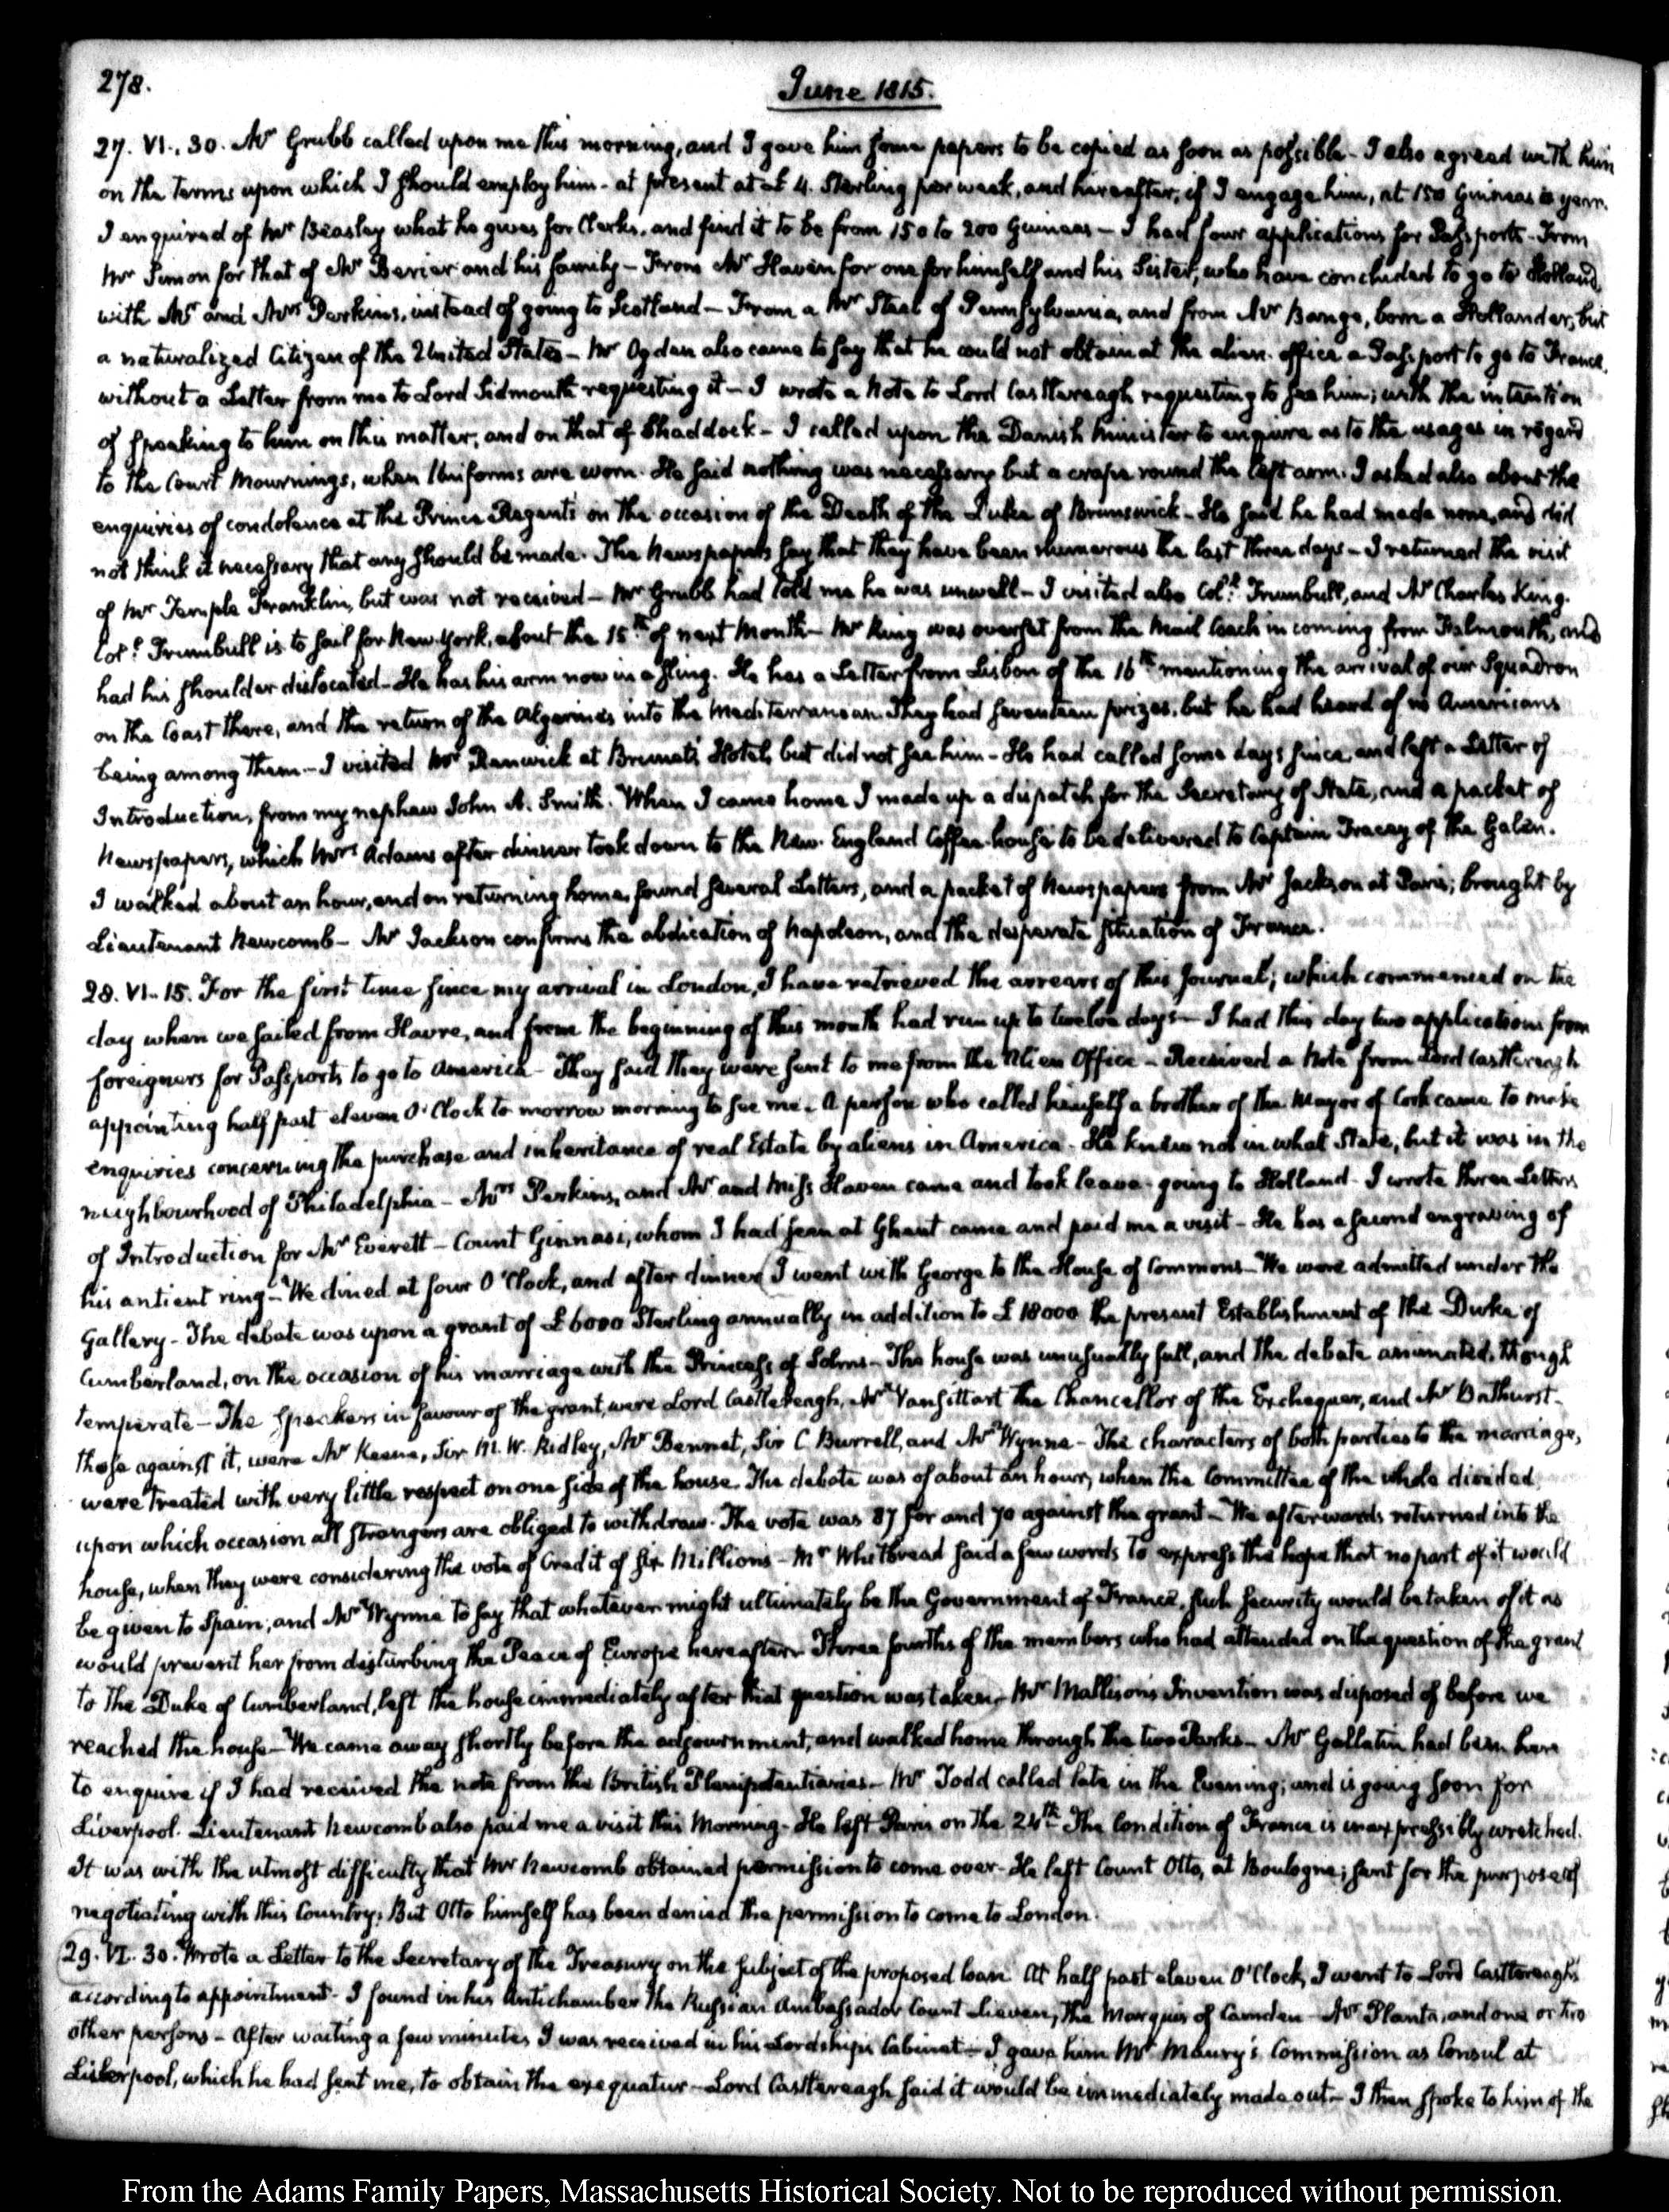 278.
June 1815.
27. VI. 30. Mr Grubb called upon me this morning, and I gave him some papers to be copied as soon as possible - I also agreed with him
on the terms upon which I should employ him - at present at £ 4. Sterling per week, and hereafter, if I engage him, at 150 Guineas a year.
I enquired of Mr Beasley what he gives for Clerks, and find it to be from 150 to 200 Guineas - I had four applications for Passports - From
Mr Simon for that of Mr and his family - From Mr Haven for one for himself and his Sister, who have concluded to go to Holland,
with Mr and Mrs Perkins, instead of going to Scotland - From a Mr Steel of Pennsylvania, and from Mr Bange, born a Hollander, but
a naturalized Citizen of the United States - Mr Ogden also came to say that he could not obtain at the alien-office a Passport to go to France,
without a Letter from me to Lord Sidmouth requesting it - I wrote a Note to Lord Castlereagh requesting to see him; with the intention
of speaking to him on this matter, and on that of Shaddock - I called upon the Danish Minister to enquire as to the usages in regard
to the Court Mournings, when Uniforms are worn. He said nothing was necessary but a crape round the left arm. I asked also about the
enquiries of condolence at the Prince Regent's on the occasion of the Death of the Duke of Brunswick - He said he had made none, and did
not think it necessary that any should be made. The Newspapers say that they have been numerous the last three days - I returned the visit
of Mr Temple Franklin, but was not received - Mr Grubb had told me he was unwell - I visited also Coll. Trumbull, and Mr Charles King.
Coll. Trumbull is to sail for New York, about the 15th of next Month - Mr King was overset from the Mail Coach in coming from Falmouth, and
had his shoulder dislocated - He has his arm now in a sling. He has a Letter from Lisbon of the 16th mentioning the arrival of our Squadron
on the Coast there, and the return of the Algerines into the Mediterranean. They had seventeen prizes, but he had heard of no Americans
being among them - I visited Mr Renwick at Brunet's Hotel, but did not see him - He had called some days since, and left a Letter of
Introduction, from my nephew John A. Smith. When I came home I made up a dispatch for the Secretary of State, and a packet of
Newspapers, which Mrs Adams after dinner took down to the New-England Coffee-house to be delivered to Captain Tracey of the Galen.
I walked about an hour, and on returning home, found several Letters, and a packet of Newspapers from Mr Jackson at Paris; brought by
Lieutenant Newcomb - Mr Jackson confirms the abdication of Napoleon, and the desperate situation of France.
28. VI. 15. For the first time since my arrival in London, I have retrieved the arrears of this Journal; which commenced on the
day when we sailed from Havre, and from the beginning of this month had run up to twelve days - I had this day two applications from
foreigners for Passports to go to America - They said they were sent to me from the Alien Office - Received a Note from Lord Castlereagh
appointing half past eleven O'Clock to morrow morning to see me - A person who called himself a brother of the Mayor of Cork came to make
enquiries concerning the purchase and inheritance of real Estate by aliens in America - He knew not in what State, but it was in the
neighbourhood of Philadelphia - Mrs Perkins, and Mr and Miss Haven came and took leave - going to Holland - I wrote three Letters
of Introduction for Mr Everett - Count Ginnasi, whom I had seen at Ghent came and paid me a visit - He has a second engraving of
his antient ring - We dined at four O'Clock, and after dinner I went with George to the House of Commons - We were admitted under the
Gallery - The debate was upon a grant of £ 6000 Sterling annually in addition to £ 18000 the present Establishment of the Duke of
Cumberland, on the occasion of his marriage with the Princess of Solms - The house was unusually full, and the debate animated, though
temperate - The Speakers in favour of the grant, were Lord Castlereagh, Mr Vansittart the Chancellor of the Exchequer, and Mr Bathurst -
those against it, were Mr Keene, Sir M. W. Ridley, Mr Bennet, Sir C. Burrell, and Mr Wynne - The characters of both parties to the marriage,
were treated with very little respect on one side of the house. The debate was of about an hour, when the Committee of the whole divided,
upon which occasion all strangers are obliged to withdraw. The vote was 87 for and 70 against the grant - We afterwards returned into the
house, when they were considering the vote of Credit of six Millions - Mr Whitbread said a few words to express the hope that no part of it would
be given to Spain; and Mr Wynne to say that whatever might ultimately be the Government of France, such security would be taken of it as
would prevent her from disturbing the Peace of Europe hereafter - Three fourths of the members who had attended on the question of the grant
to the Duke of Cumberland, left the house immediately after that question was taken - Mr Mallison's Invention was disposed of before we
reached the house - We came away shortly before the adjournment, and walked home through the two Parks - Mr Gallatin had been here
to enquire if I had received the note from the British Plenipotentiaries - Mr Todd called late in the Evening; and is going soon for
Liverpool. Lieutenant Newcomb also paid me a visit this Morning - He left Paris on the 24th. The Condition of France is inexpressibly wretched.
It was with the utmost difficulty that Mr Newcomb obtained permission to come over - He left Count Otto, at Boulogne; sent for the purpose of
negotiating with this Country: But Otto himself has been denied the permission to come to London.
29. VI. 30. Wrote a Letter to the Secretary of the Treasury on the subject of the proposed loan. At half past eleven O'Clock, I went to Lord Castlereagh's
according to appointment - I found in his Antichamber the Russian Ambassador Count Lieven, the Marquis of Camden - Mr Planta, and one or two
other persons - After waiting a few minutes I was received in his Lordship's Cabinet - I gave him Mr Maury's Commission as Consul at
Liverpool, which he had sent me, to obtain the exequatur - Lord Castlereagh said it would be immediately made out - I then spoke to him of the
From the Adams Family Papers, Massachusetts Historical Society. Not to be reproduced without permission.